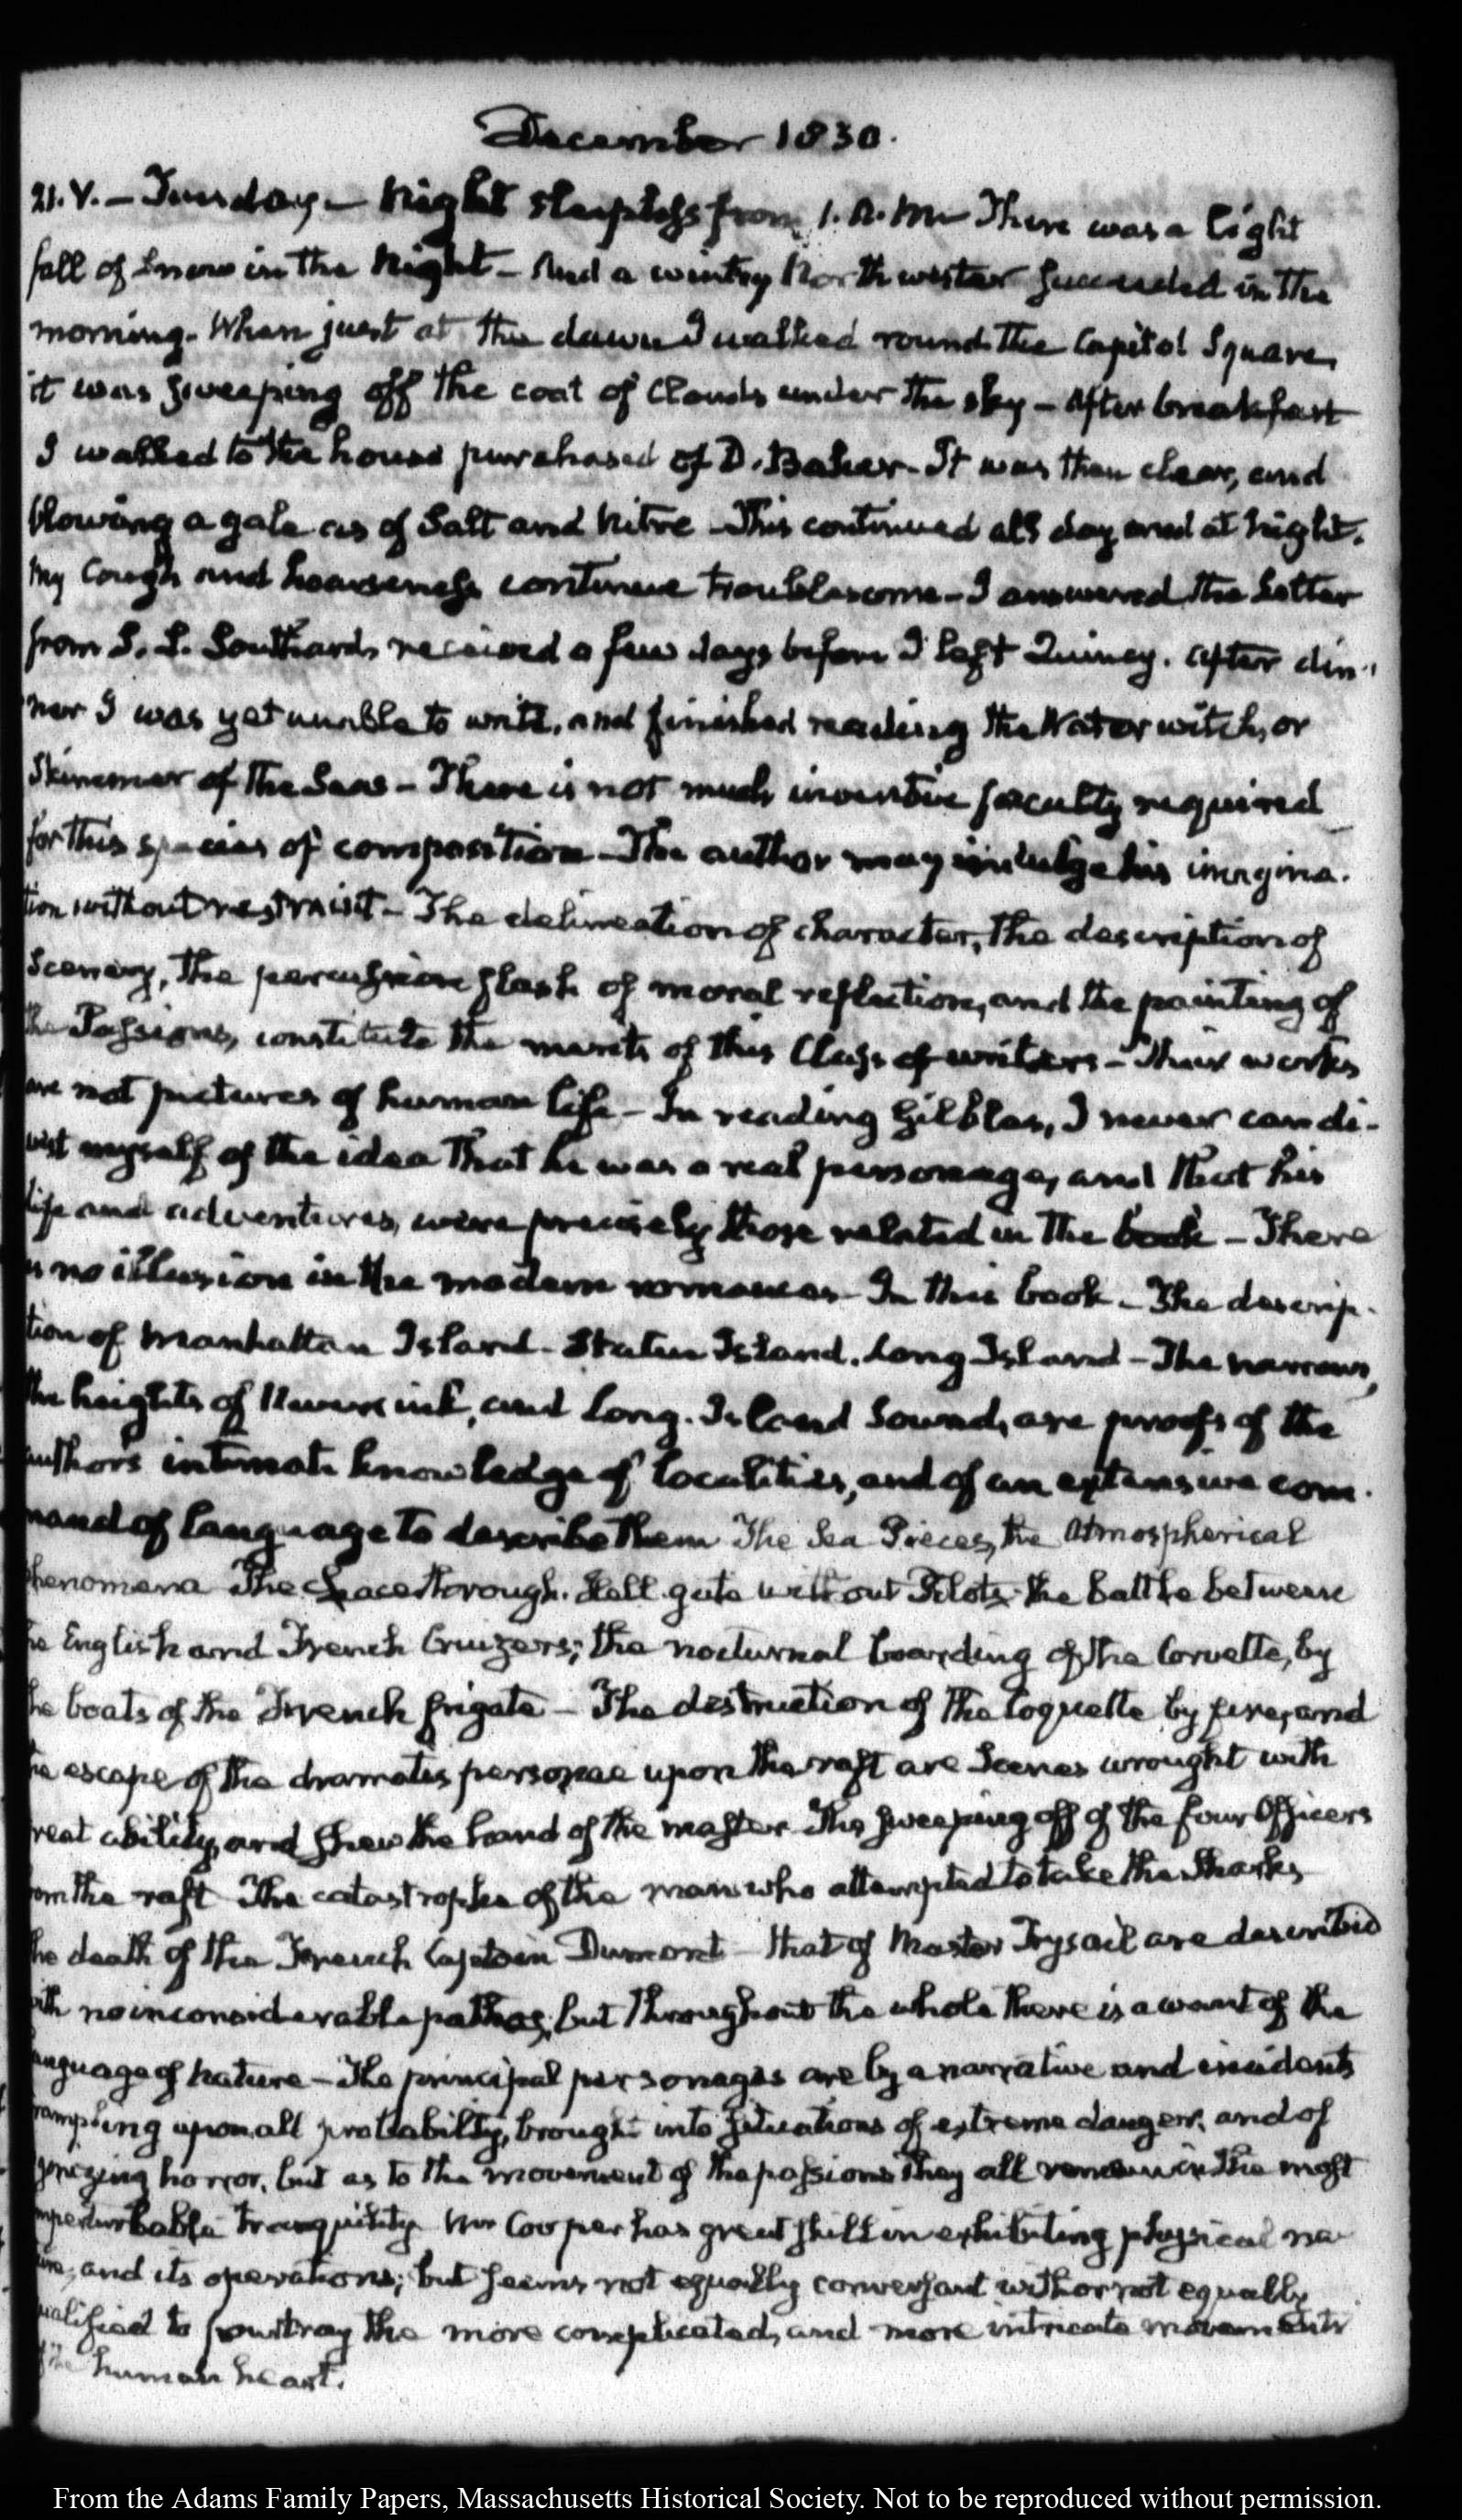 December 1830.
21. V. – Tuesday – Night sleepless from 1. A. M – There was a light
fall of Snow in the Night – And a wintry North wester succeeded in the
morning. When just at the dawn I walked round the Capitol Square,
it was sweeping off the coat of Clouds under the sky – After breakfast
I walked to the house purchased of D. Baker – It was then clear, and
blowing a gale as of Salt and Nitre – This continued all day and at Night.
My Cough and hoarseness continue troublesome – I answered the Letter
from S. L. Southard, received a few days before I left Quincy. After din-
ner I was yet unable to write, and finished reading the Water witch, or
Skimmer of the Seas – There is not much inventive faculty required
for this species of composition – The author may indulge his imagina-
tion without restraint – The delineation of character, the description of
Scenery, the percussion flash of moral reflection, and the painting of
the Passions, constitute the merits of this Class of writers – Their works
are not pictures of human life – In reading Gil blas, I never can di-
vest myself of the idea that he was a real personage, and that his
life and adventures, were precisely those related in the book – There
is no illusion in the modern romances – In this book – The descrip-
tion of Manhattan Island – Staten Island. Long Island – The narrows,
the heights of Neversink, and Long-Island Sound, are proofs of the
author's intimate knowledge of localities, and of an extensive com-
mand of language to describe them The Sea Pieces, the Atmospherical
phenomena The Chace through Hell gate without Pilots – the battle between
the English and French Cruizers; the nocturnal boarding of the Corvette, by
the boats of the French frigate – The destruction of the Coquette by fire, and
the escape of the dramatis personae upon the raft are Scenes wrought with
great ability, and shew the hand of the master – The sweeping off of the four Officers
from the raft The catastrophe of the man who attempted to take the Sharks,
the death of the French Captain Dumont – that of Master Trysail are described
with no inconsiderable pathos; but throughout the whole there is a want of the
language of Nature – The principal personages are by a narrative and incidents
trampling upon all probability, brought into situations of extreme danger, and of
agonizing horror, but as to the movement of the passions they all remain in the most
imperturbable tranquility Mr Cooper has great skill in exhibiting physical na-
ture, and its operations; but seems not equally conversant with or not equally
qualified to pourtray the more complicated, and more intricate movements
of the human heart.
From the Adams Family Papers, Massachusetts Historical Society. Not to be reproduced without permission.